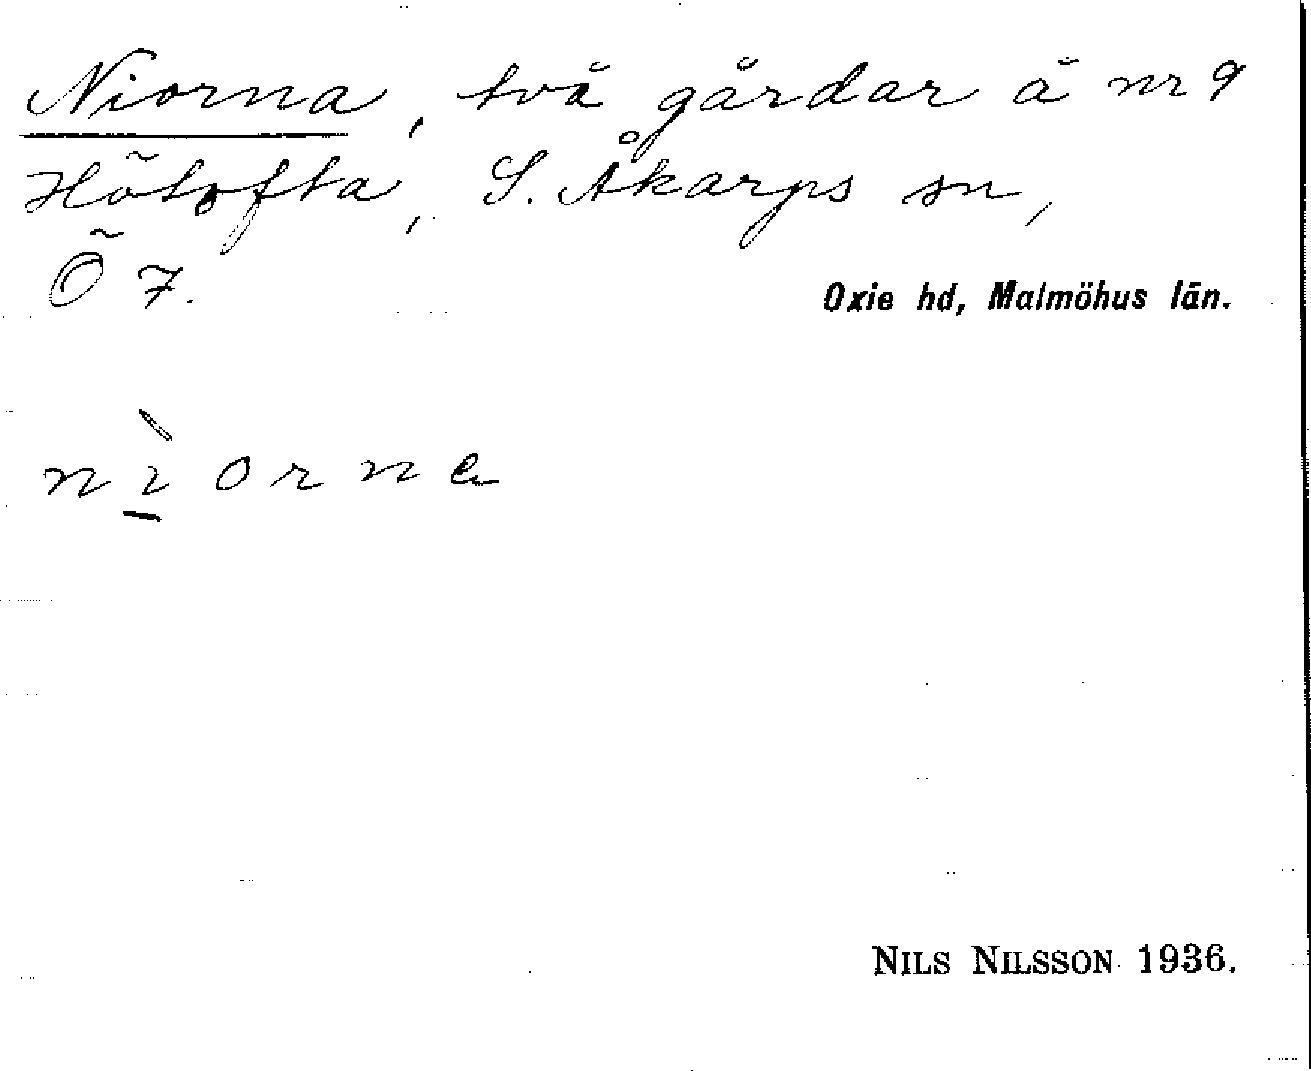 Niorna, två gårdar å nr 9
Hötofta, S. Åkarps sn,
Ö 7.
Oxie hd, Malmöhus län.
nì̱orne
NILS NILSSON 1936.